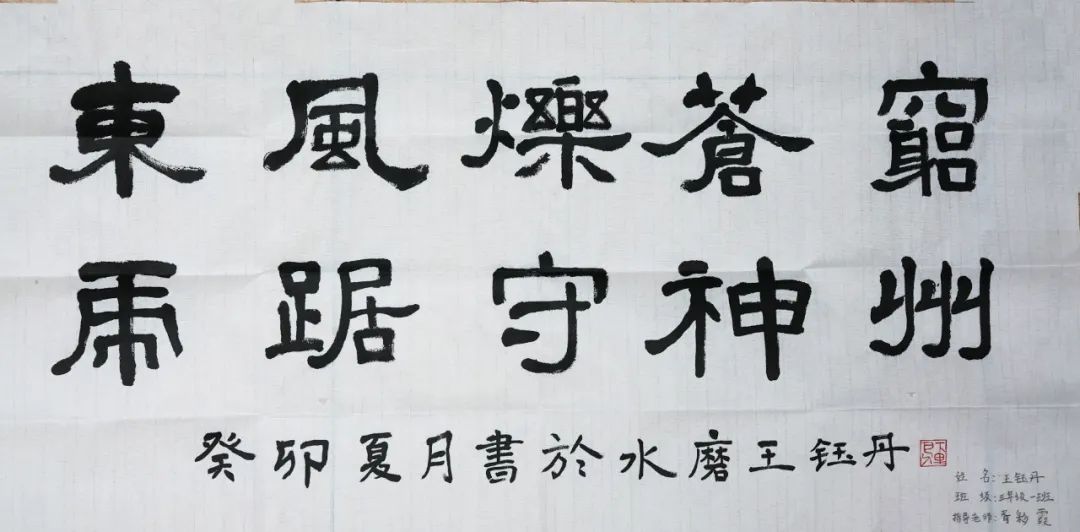 東風爍蒼窮
虎踞守神州
癸卯夏月書於水磨王钰丹
姓名:王钰丹
班级:年级一班
指导老师:胥彩霞